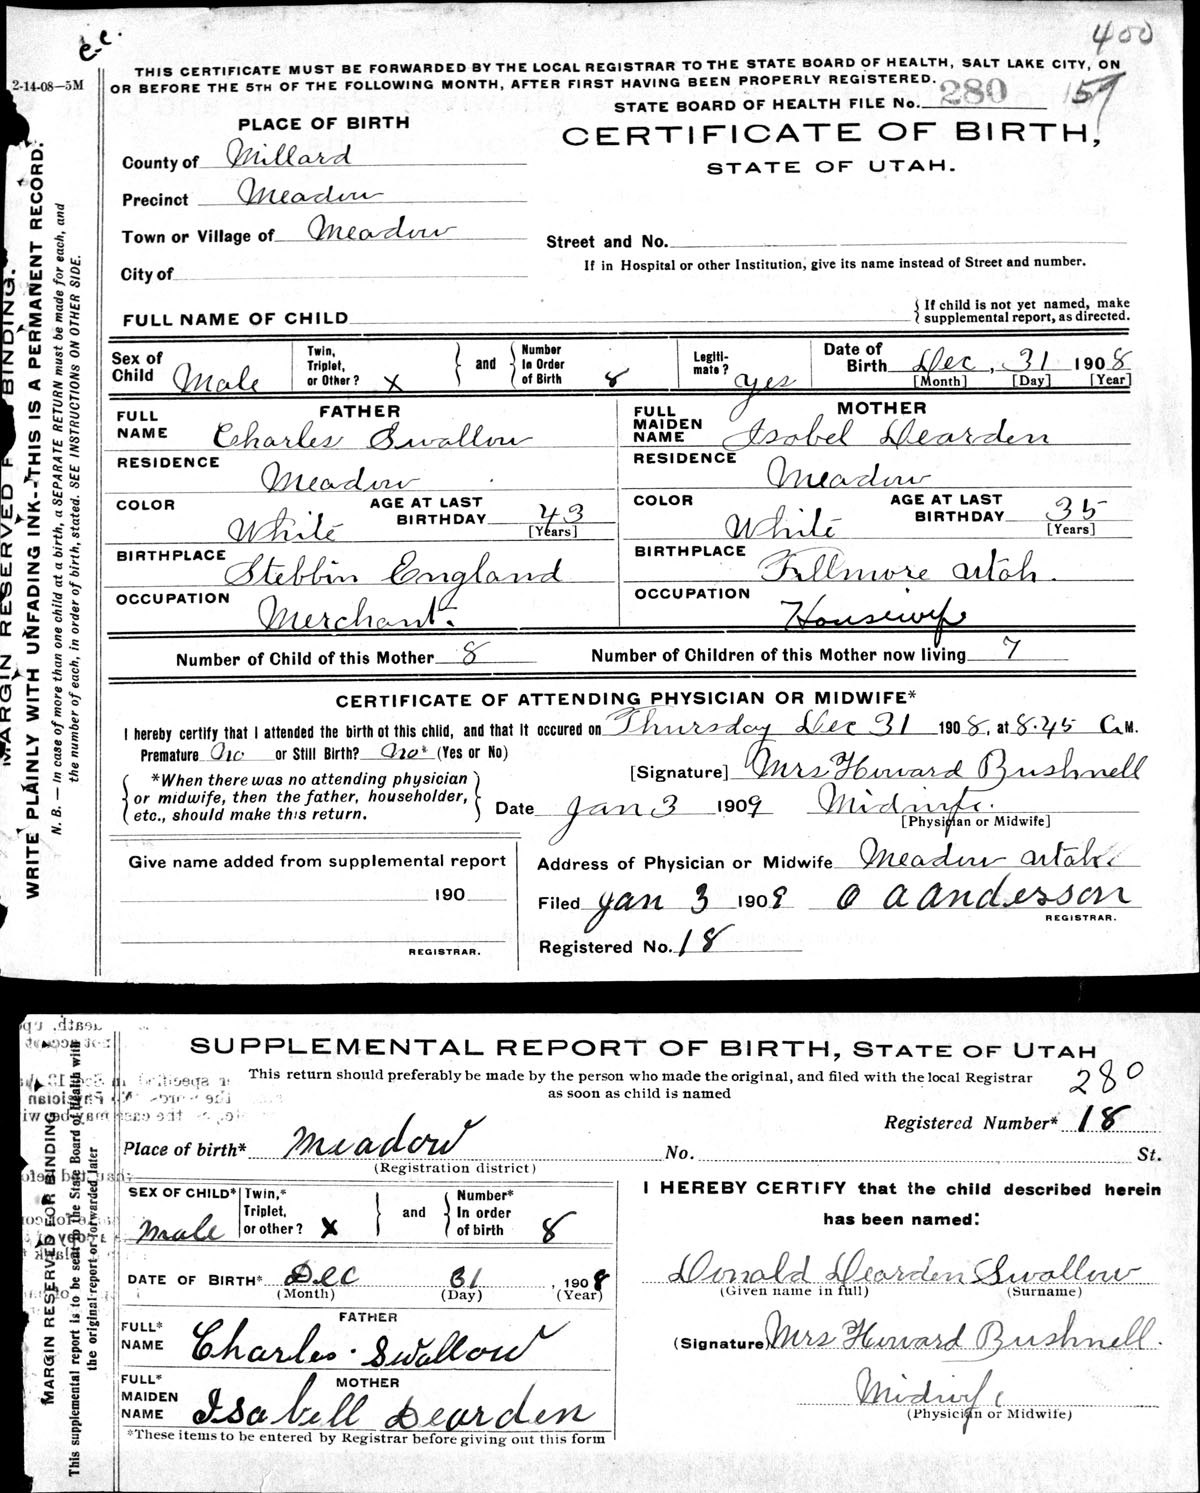 c.c.
400
2-14-08—5M
THIS CERTIFICATE MUST BE FORWARDED BY THE LOCAL REGISTRAR TO THE STATE BOARD OF HEALTH, SALT LAKE CITY, ON
OR BEFORE THE 5TH OF THE FOLLOWING MONTH, AFTER FIRST HAVING BEEN PROPERLY REGISTERED.
STATE BOARD OF HEALTH FILE No. 280 157
PLACE OF BIRTH
CERTIFICATE OF BIRTH,
STATE OF UTAH.
County of Millard
Precinct Meadow
Town or Village of Meadow
Street and No.
City of
If in Hospital or other Institution, give its name instead of Street and number.
FULL NAME OF CHILD
{ If child is not yet named, make
supplemental report, as directed.
Sex of Child Male
Twin, Triplet, or Other? X } and { Number In Order of Birth 8
Legiti-mate? yes
Date of Birth Dec, 31 1908
[Month] [Day] [Year]
FATHER
MOTHER
FULL NAME Charles Swallow
FULL MAIDEN NAME Isabel Dearden
RESIDENCE Meadow
RESIDENCE Meadow
COLOR White AGE AT LAST BIRTHDAY 43 [Years]
COLOR White AGE AT LAST BIRTHDAY 35 [Years]
BIRTHPLACE Stebbin England
BIRTHPLACE Fillmore Utah.
OCCUPATION Merchant.
OCCUPATION Housewife
Number of Child of this Mother 8 Number of Children of this Mother now living 7
CERTIFICATE OF ATTENDING PHYSICIAN OR MIDWIFE*
I hereby certify that I attended the birth of this child, and that it occured on Thursday Dec 31 1908, at 8.45 a. M.
Premature No or Still Birth? No* (Yes or No)
[Signature] Mrs Howard Bushnell
{ *When there was no attending physician
or midwife, then the father, householder,
etc., should make this return. }
Date Jan 3 1909 Midwife.
[Physician or Midwife]
Give name added from supplemental report
190
REGISTRAR.
Address of Physician or Midwife Meadow Utah.
Filed Jan 3 1909 O A Anderson
REGISTRAR.
Registered No. 18
MARGIN RESERVED FOR BINDING.
WRITE PLAINLY WITH UNFADING INK--THIS IS A PERMANENT RECORD.
N. B. — In case of more than one child at a birth, a SEPARATE RETURN must be made for each, and
the number of each, in order of birth, stated. SEE INSTRUCTIONS ON OTHER SIDE.
SUPPLEMENTAL REPORT OF BIRTH, STATE OF UTAH
This return should preferably be made by the person who made the original, and filed with the local Registrar
as soon as child is named
280
Registered Number* 18
Place of birth* Meadow No. St.
(Registration district)
SEX OF CHILD* Male
Twin,* Triplet, or other? X } and { Number* In order of birth 8
DATE OF BIRTH* Dec 31, 1908
(Month) (Day) (Year)
FATHER
FULL* NAME Charles Swallow
MOTHER
FULL* MAIDEN NAME Isabell Dearden
*These items to be entered by Registrar before giving out this form
I HEREBY CERTIFY that the child described herein
has been named:
Donald Dearden Swallow
(Given name in full) (Surname)
(Signature) Mrs Howard Bushnell.
Midwife
(Physician or Midwife)
MARGIN RESERVED FOR BINDING
This supplemental report is to be sent to the State Board of Health with
the original report or forwarded later